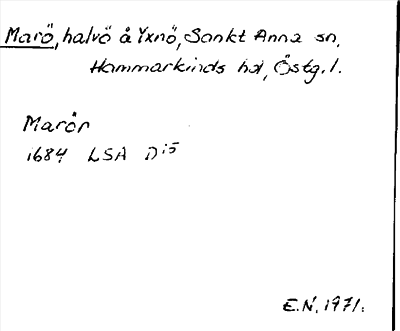 Marö, halvö å Yxnö, Sankt Anna sn,
Hammarkinds hd, Östg. l.
Marön
1684 LSA D:5
E.N. 1971.